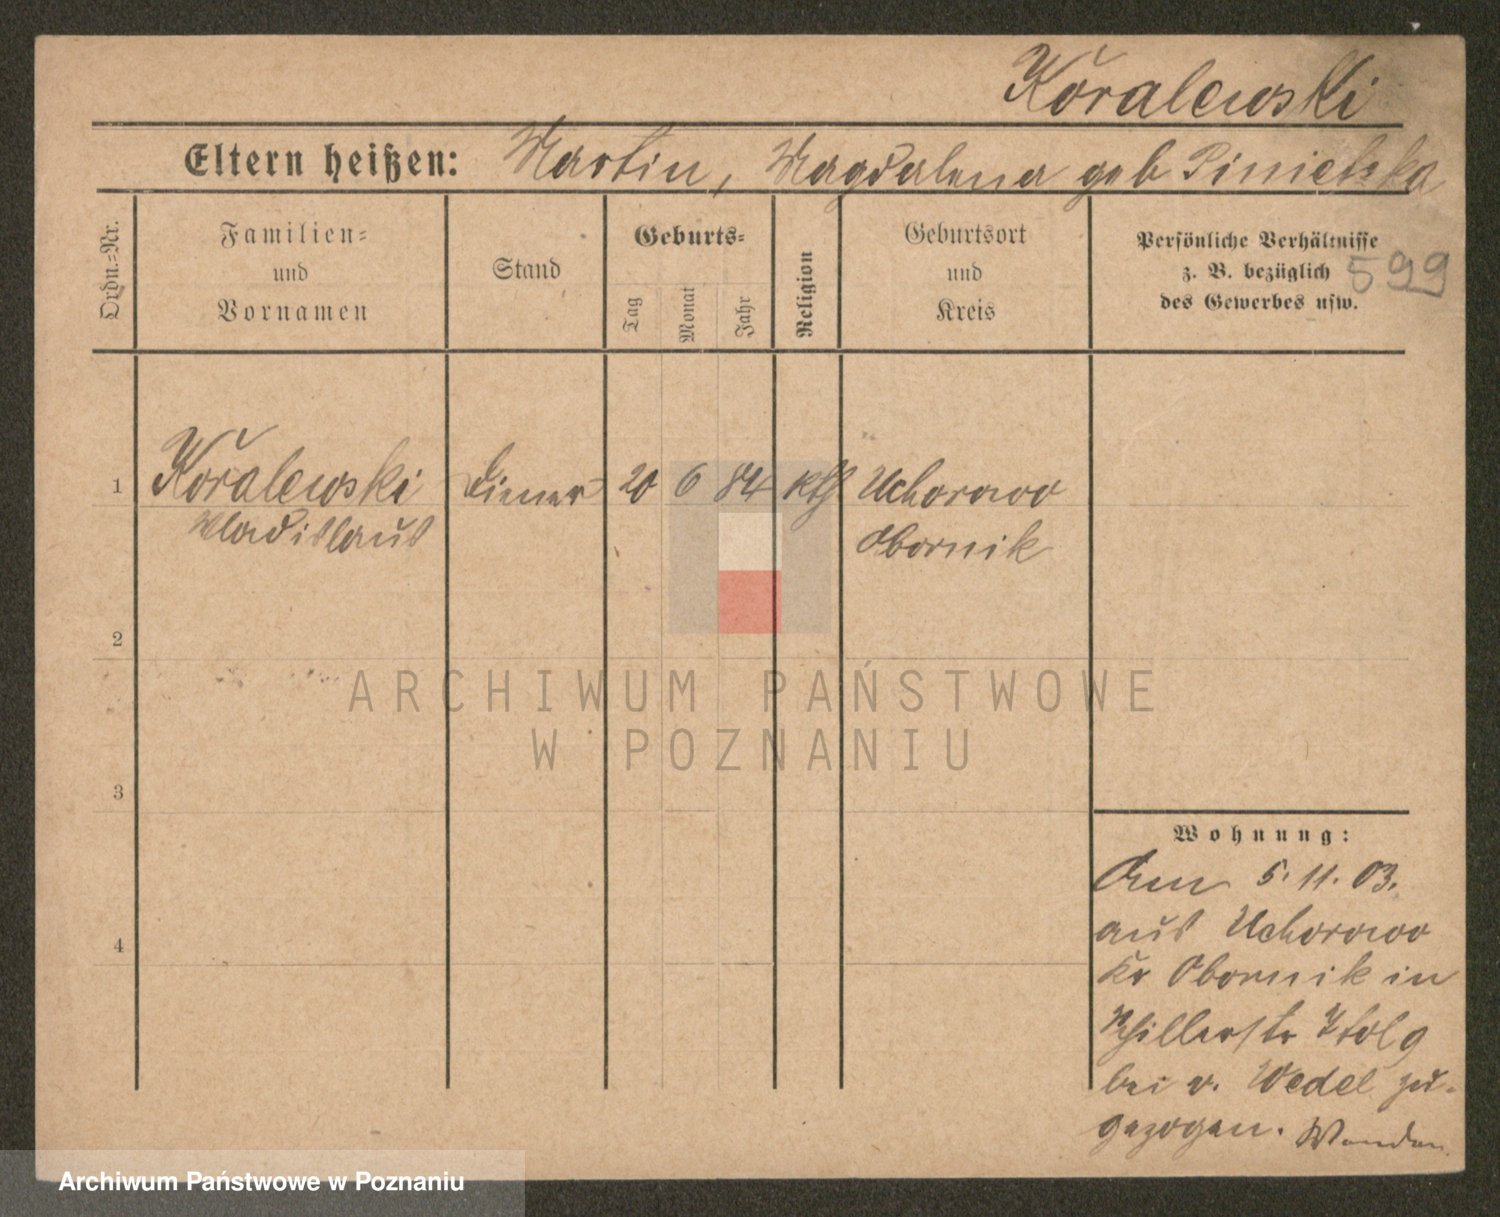 Koralewski
Eltern heißen: Martin, Magdalena geb
Ordn.-Nr.
Familien-
und
Vornamen
Stand
Geburts-
Tag
Monat
Jahr
Religion
Geburtsort
und
Kreis
Persönliche Verhältnisse
z. B. bezüglich
des Gewerbes usw.
599
1 Koralewski Diener 20 6 84 kth Uchorowo
Wladislaus Obornik
2
3
4
ARCHIWUM PAŃSTWOWE
W POZNANIU
Wohnung:
Den 5. 11. 03.
aus Uchorowo
Kr Obornik in
Schillerstr
bei v. Wedel zu-
gezogen.
Archiwum Państwowe w Poznaniu